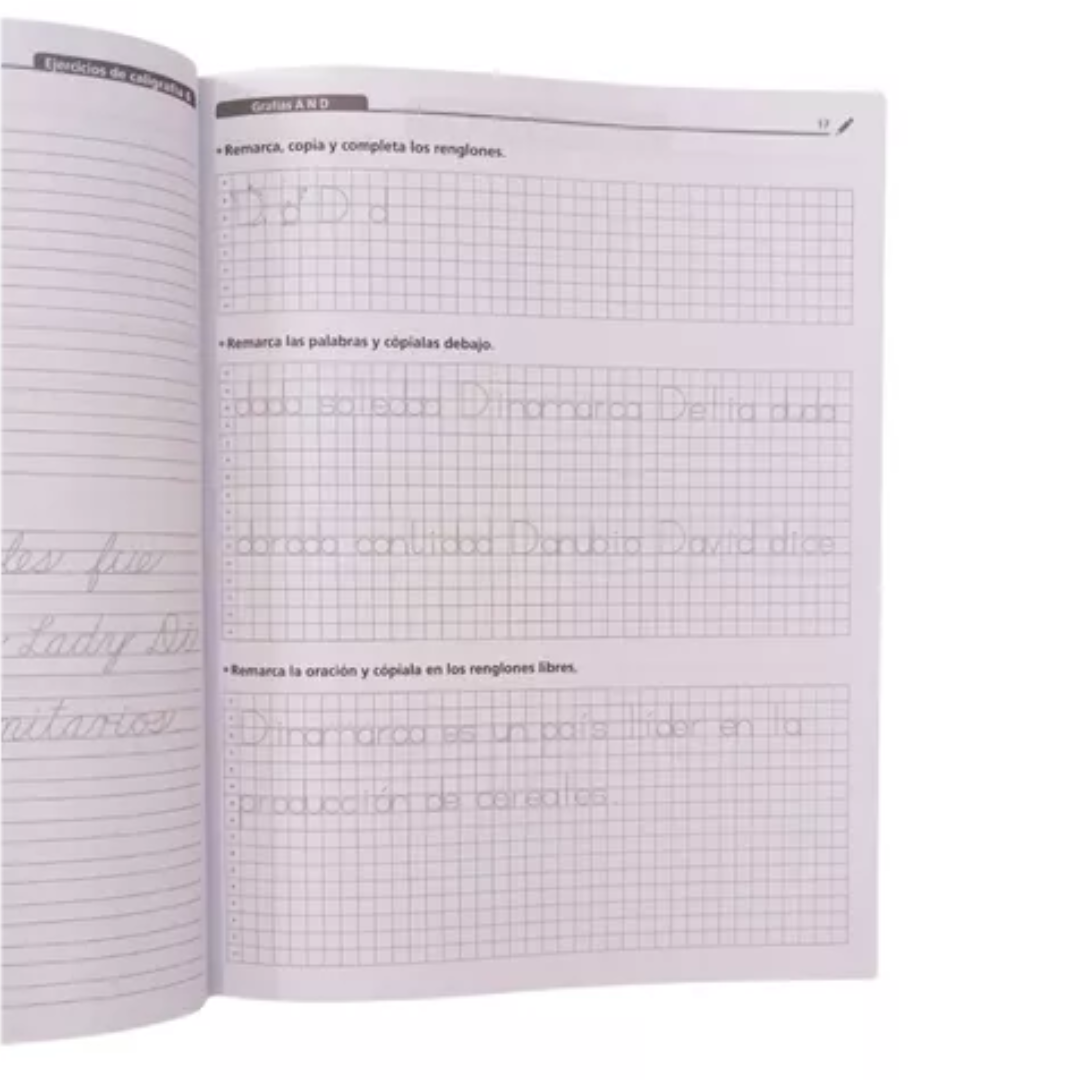 Ejercicios de caligrafía 6
les fue
Lady Di
nitarios
Grafías A N D
17
• Remarca, copia y completa los renglones.
D d D d
• Remarca las palabras y cópialas debajo.
dada soledad Dinamarca Delia duda
dorada cantidad Danubio David dice
• Remarca la oración y cópiala en los renglones libres.
Dinamarca es un país líder en la
producción de cereales.